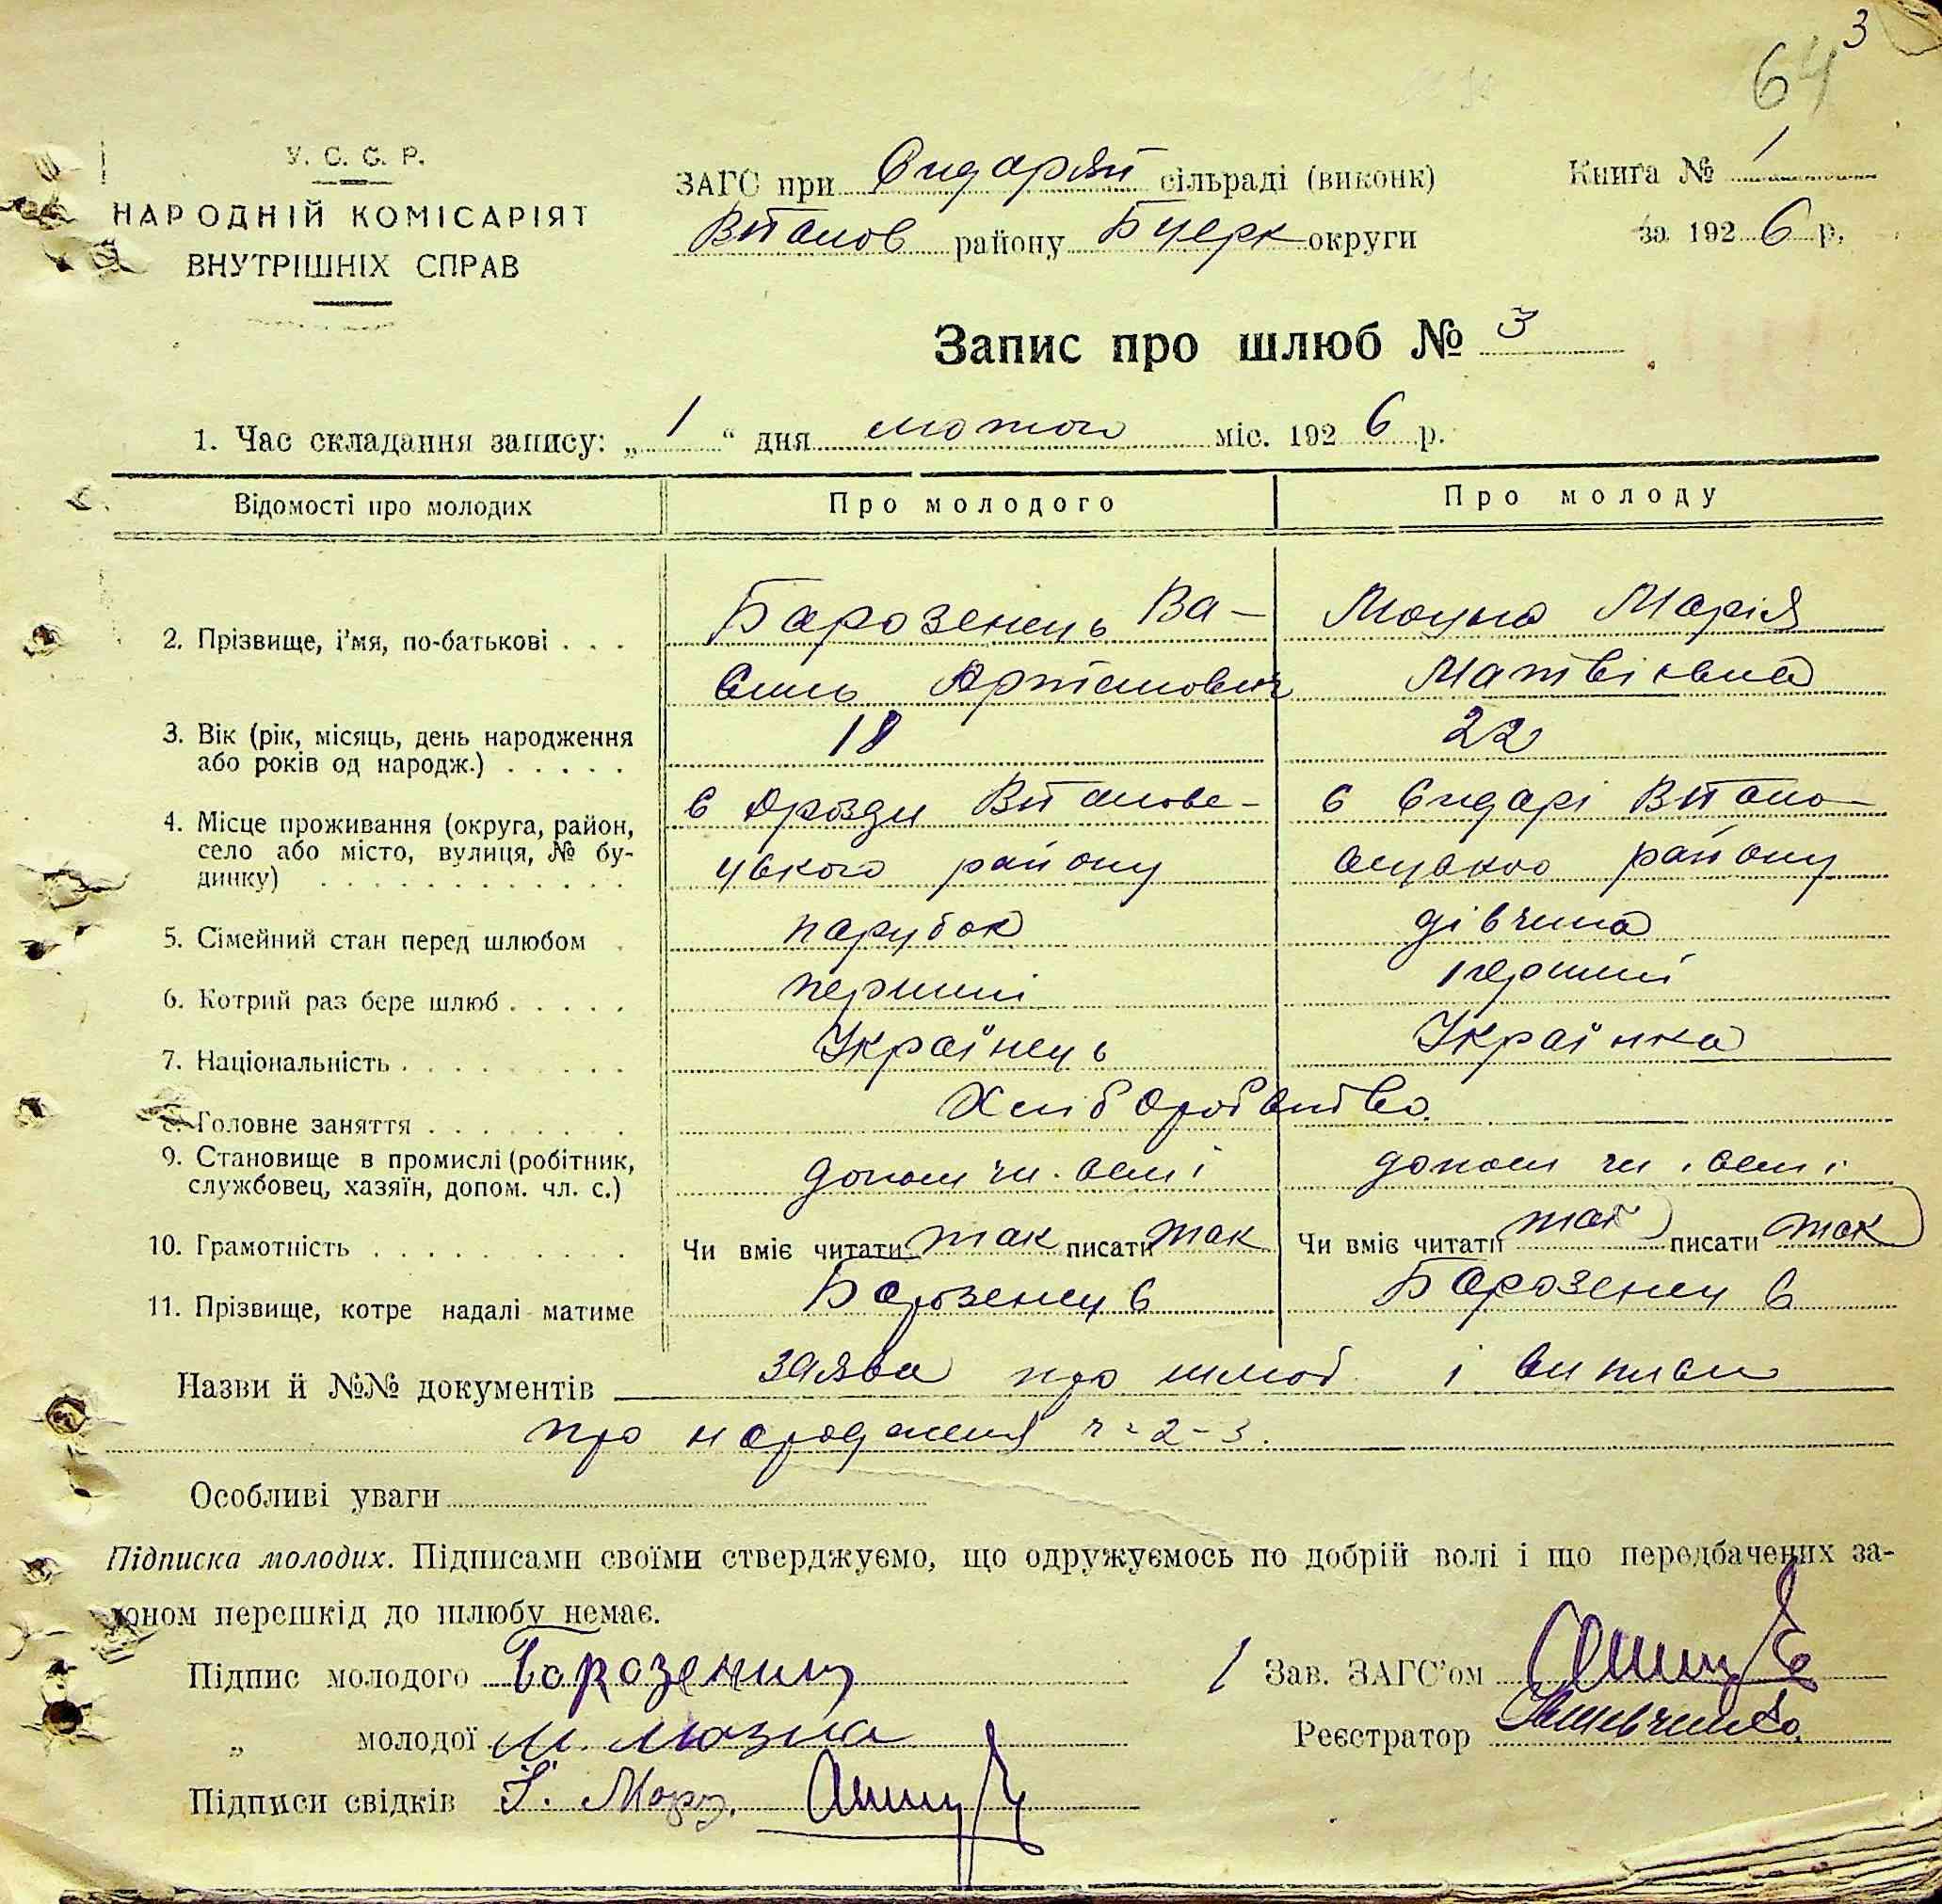 3
64
У. С. С. Р.
НАРОДНІЙ КОМІСАРІЯТ
ВНУТРІШНІХ СПРАВ
ЗАГС при Сидарян сільраді (виконк)
району Бцерк округи
Книга № 1
за 1926 р.
Запис про шлюб № 3
1. Час складання запису: „ 1 “ дня лютого міс. 1926 р.
Відомості про молодих
Про молодого
Про молоду
2. Прізвище, і'мя, по-батькові . . .
Барозенець Ва-
силь
Марія
Матвієвна
3. Вік (рік, місяць, день народження
або років од народж.) . . . . .
18
22
4. Місце проживання (округа, район,
село або місто, вулиця, № бу-
динку) . . . . . . . . . . . .
с Дрозди
цького району
с Сидарі
району
5. Сімейний стан перед шлюбом .
парубок
дівчина
6. Котрий раз бере шлюб . . . . .
перший
перший
7. Національність . . . . . . . . .
Українець
Українка
8. Головне заняття . . . . . . . .
Хліборобство
9. Становище в промислі (робітник,
службовец, хазяїн, допом. чл. с.)
допом чл. семі
допом чл. семі
10. Грамотність . . . . . . . . .
Чи вміє читати так писати так
Чи вміє читати так писати так
11. Прізвище, котре надалі матиме
Барозенець
Барозенець
Назви й №№ документів заява про шлюб і виписи
про народження ч 2-3.
Особливі уваги
Підписка молодих. Підписами своїми стверджуємо, що одружуємось по добрій волі і що передбачених за-
коном перешкід до шлюбу немає.
Підпис молодого
Зав. ЗАГС'ом
„ молодої М.
Реєстратор
Підписи свідків